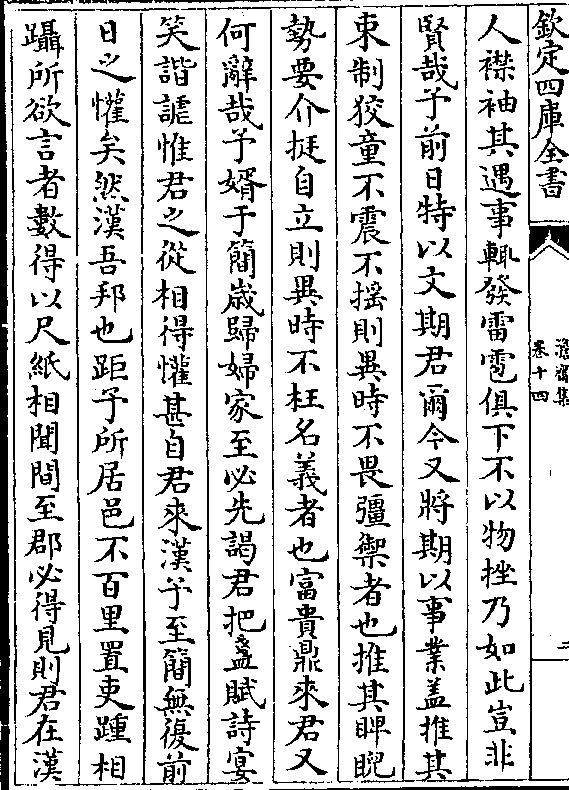 欽定四庫全書
卷十四
人襟袖其遇事輒發雷雹俱下不以物挫乃如此豈非
賢哉予前日特以文期君爾今又將期以事業盖推其
束制狡童不震不揺則異時不畏彊禦者也推其睥睨
勢要介挺自立則異時不枉名義者也富貴鼎來君又
何辭哉予婿于簡歳歸婦家至必先謁君把盞賦詩宴
笑諧謔惟君之從相得懽甚自君來漢予至簡無復前
日之懽矣然漢吾邦也距予所居邑不百里置吏踵相
躡所欲言者數得以尺紙相聞間至郡必得見則君在漢